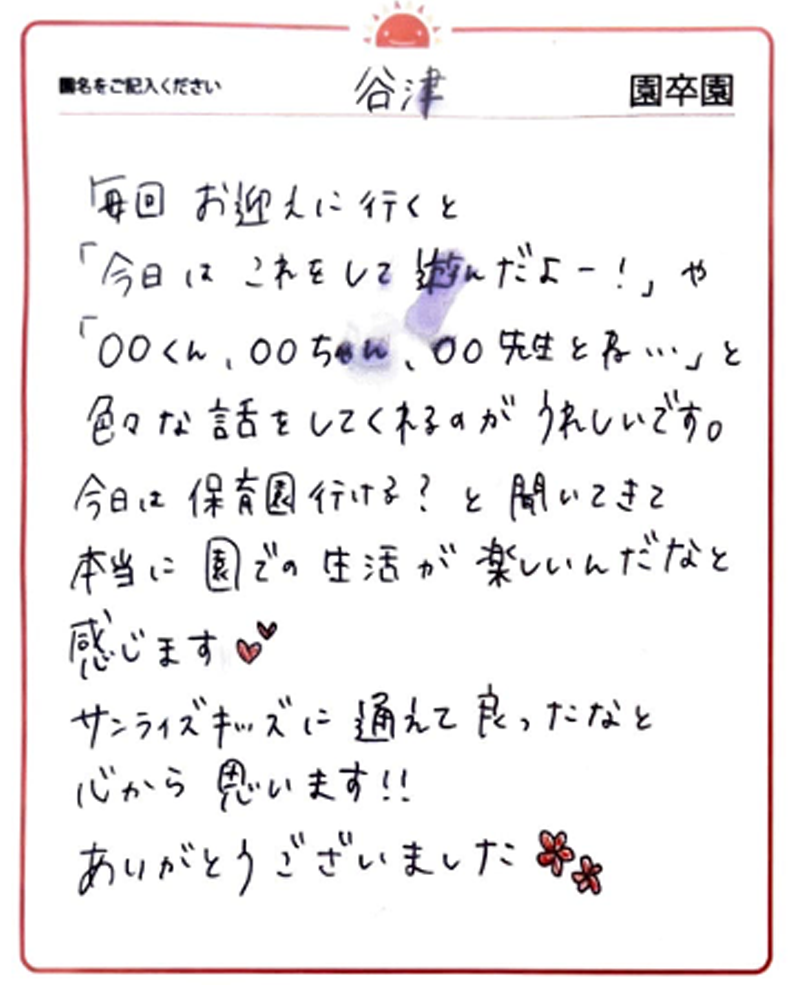 園名をご記入ください 谷津 園卒園
「毎回 お迎えに行くと
「今日は これをして 遊んだよー!」や
「〇〇くん、〇〇ちゃん、〇〇先生とね…」と
色々な話をしてくれるのが うれしいです。
今日は 保育園行ける? と 聞いてきて
本当に 園での 生活が 楽しいんだなと
感じます
サンライズキッズに 通えて 良ったなと
心から 思います!!
ありがとうございました